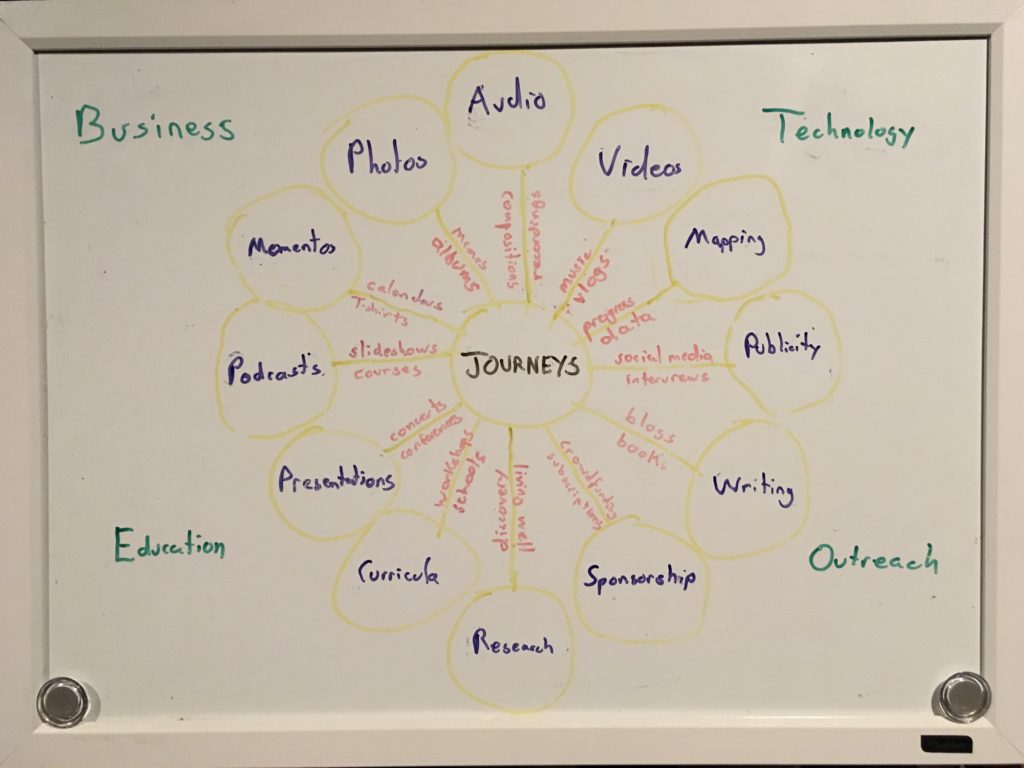 Business
Technology
Audio
Photos
Videos
Momentos
Mapping
Podcasts
Publicity
JOURNEYS
Presentations
Writing
Curricula
Sponsorship
Research
Education
Outreach
compositions
recordings
albums
music
vlogs
calendars
T-shirts
progress
data
slideshows
courses
social media
interviews
concerts
conferences
blogs
books
workshops
schools
crowdfunding
subscriptions
discovery
living well